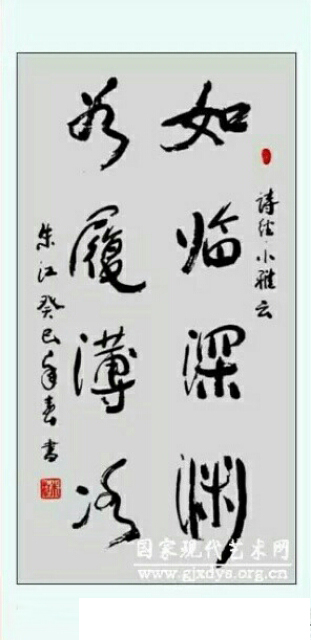 詩经·小雅云
如临深渊
如履薄冰
朱江癸巳年春書
国家现代艺术网
www.gjxdys.org.cn